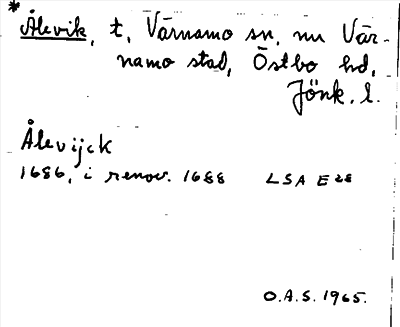 * Ålevik, t, Värnamo sn, nu Vär-
namo stad, Östbo hd,
Jönk. l.
Ålevijck
1686, i renov. 1688 LSA E 28
O.A.S. 1965.